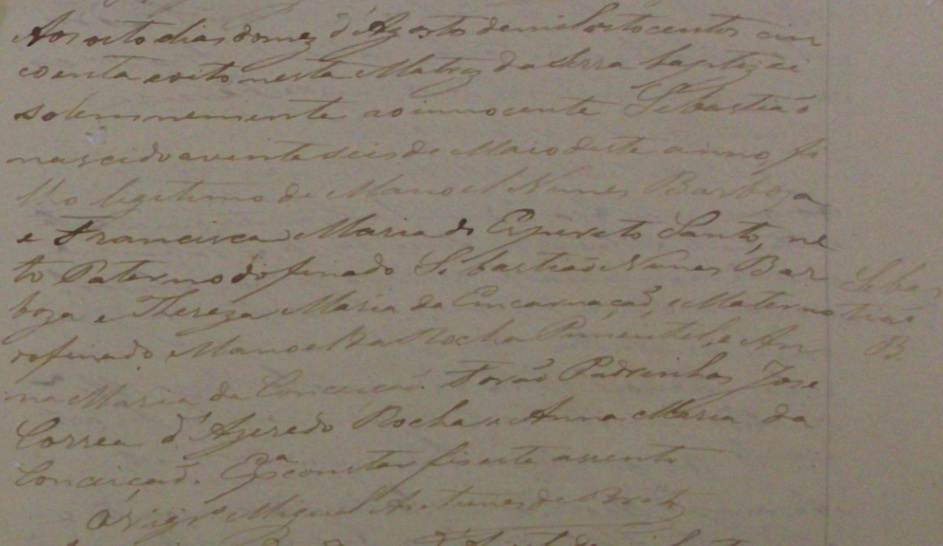 Aos oito dias do mez d'Agosto de mil oito centos cin
coenta e oito nesta Matriz da Serra baptizei
solemnemente ao innocente Sebastião
nascido a vinte seis de Maio deste anno, fi
lho legitimo de Manoel Nunes Barboza
e Francisca Maria do Espireto Santo, ne
to Paterno do finado Sebastião Nunes Bar
boza e Thereza Maria da Encarnação, e Materno
do finado Manoel da Rocha Pimentel, e An
na Maria da Conceição. Forão Padrinhos Jose
Correa d'Azeredo Rocha e Anna Maria da
Conceição. E pª constar fis este assento
O Vigrº Miguel Antunes de Brito
Sebas
tião
B.